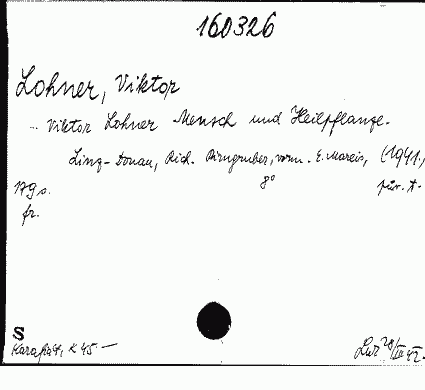 160326
Lohner, Viktor
... Viktor Lohner Mensch und Heilpflanze.
Linz-Donau, Rich. Pirngruber, vorm. E. Mareis, (1941.,
179 s. 8°
fr.
S
K 45 —